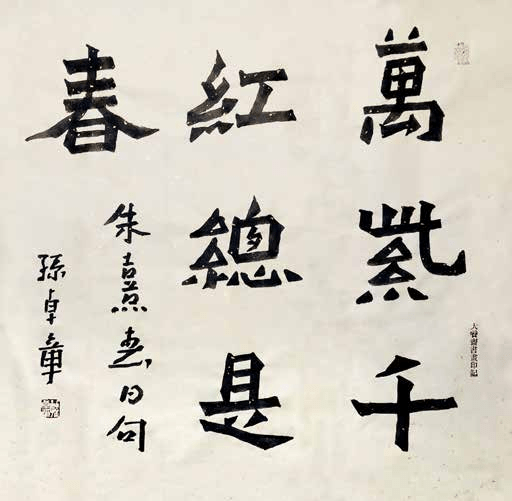 萬紫千
紅總是
春
朱熹春日句
孫卓章
書畫印記